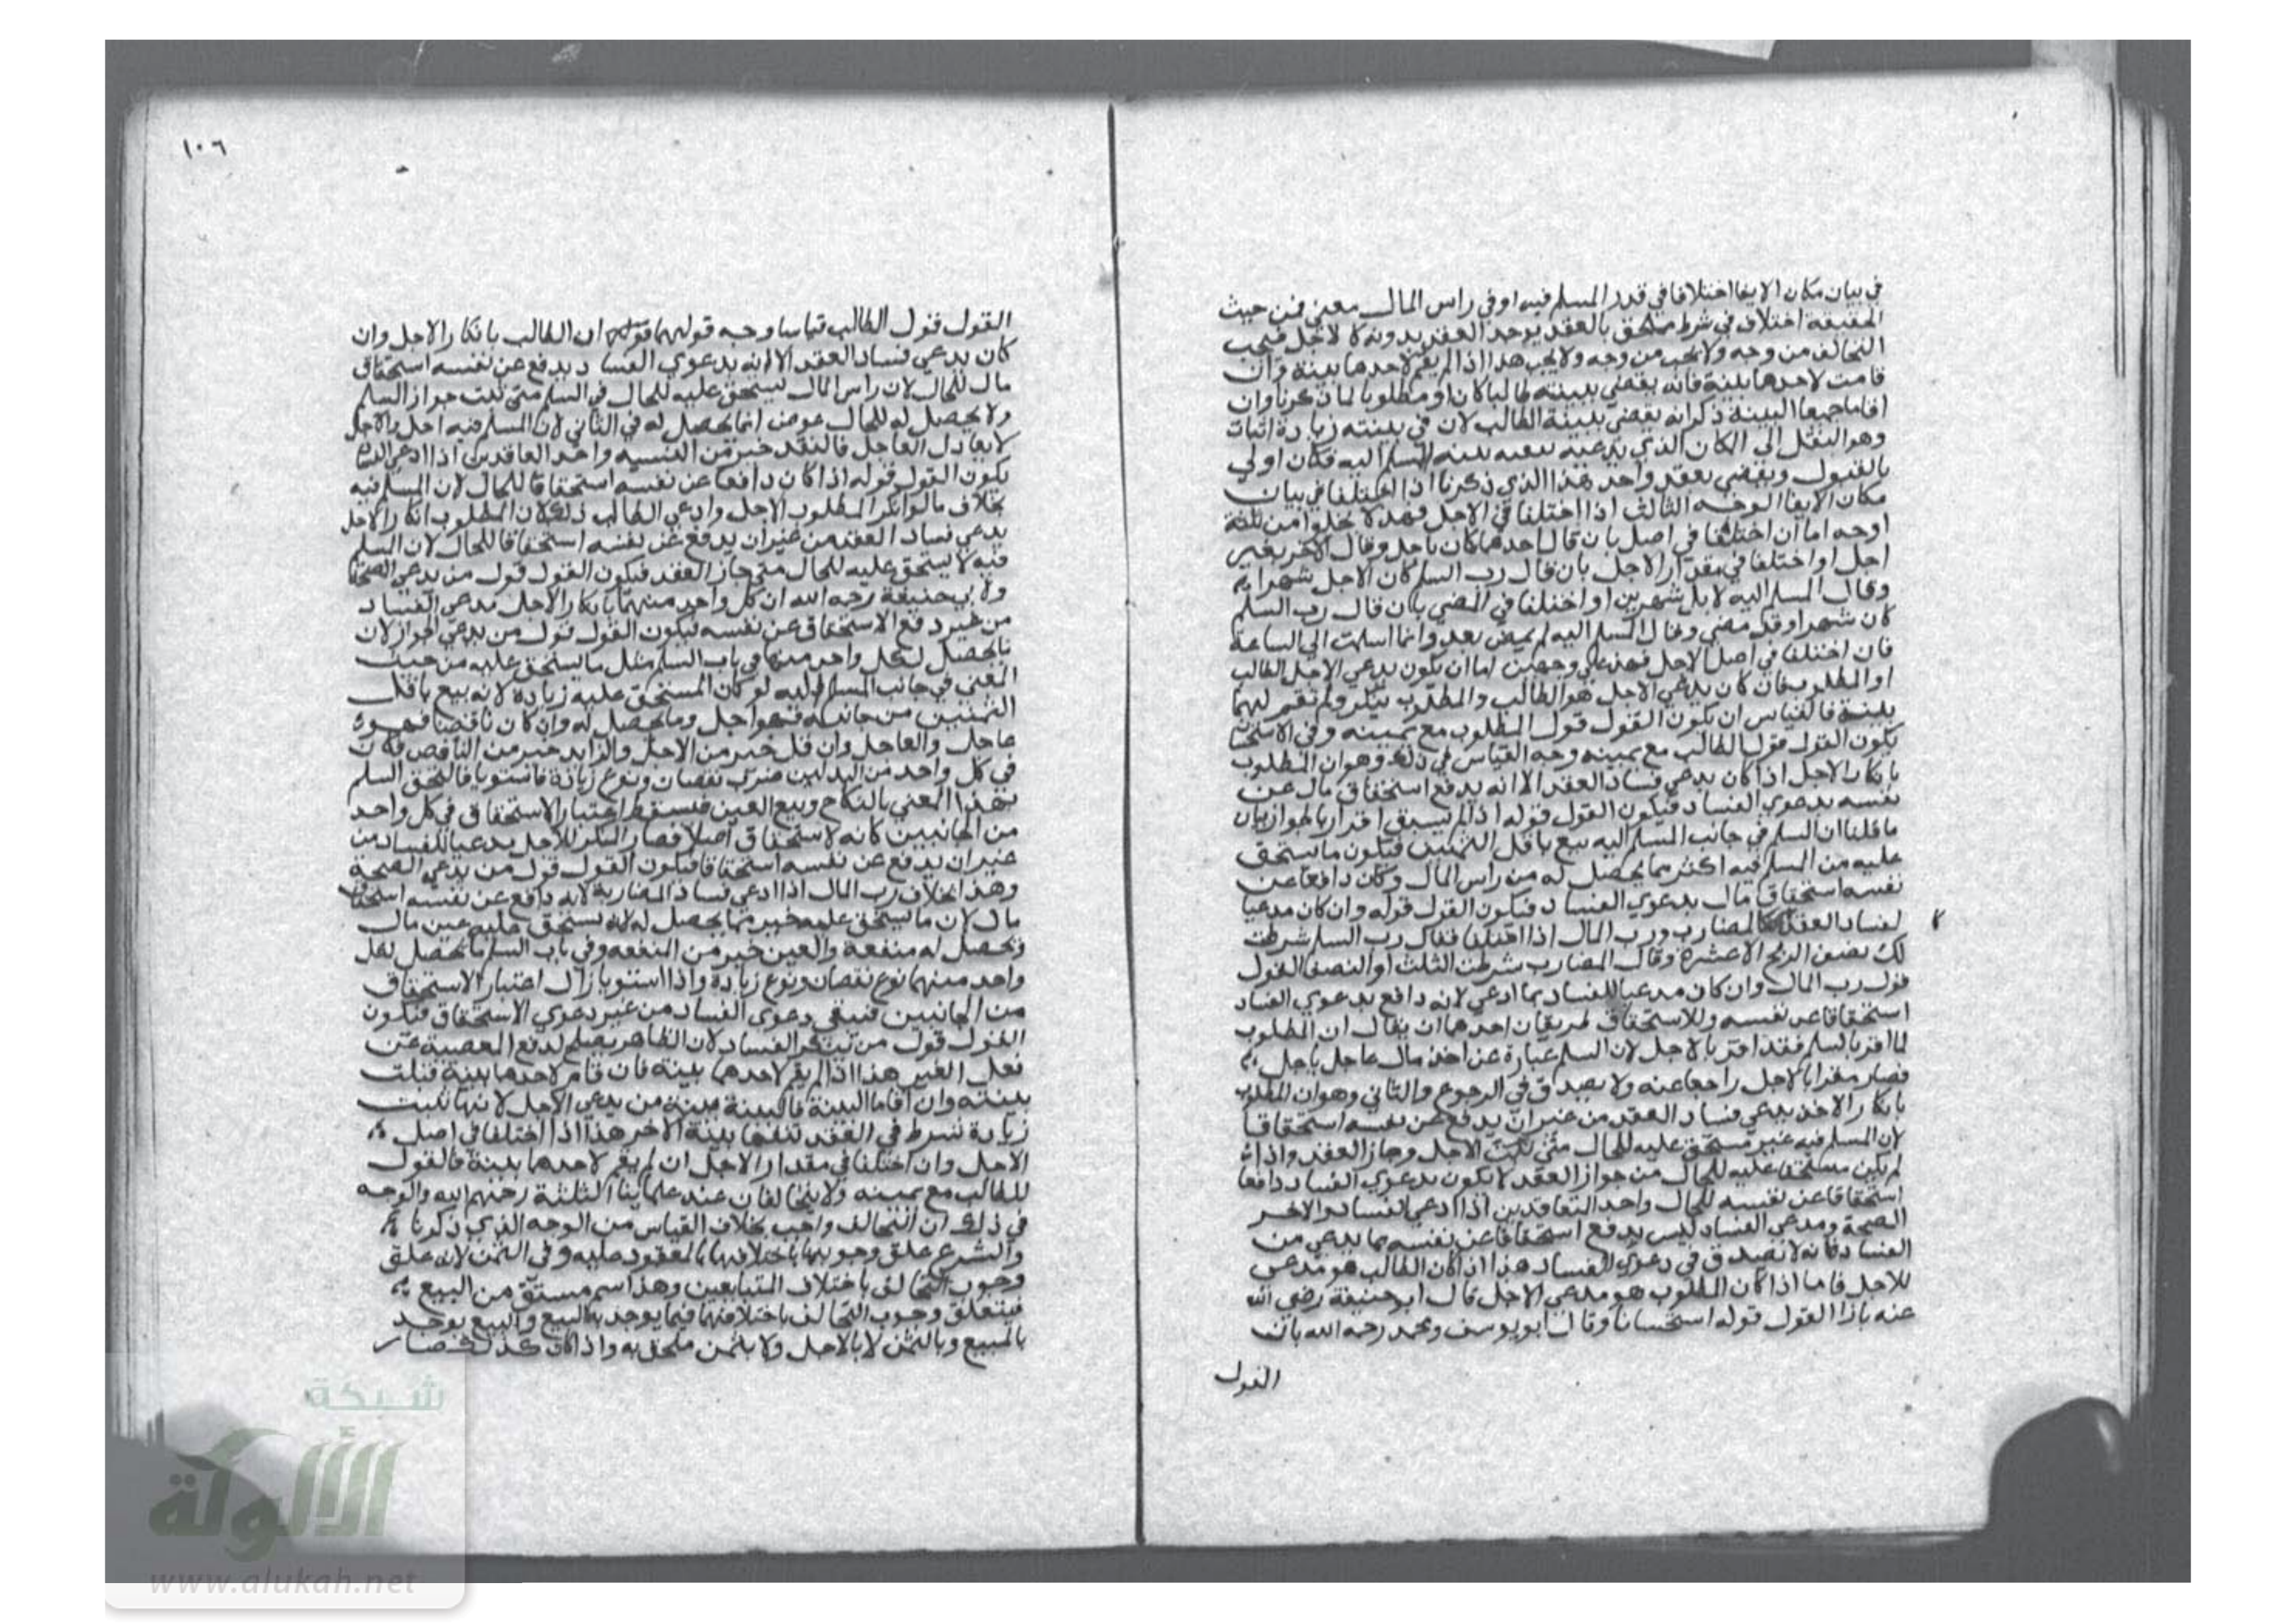 في بيان مكان الايفا اختلافا في قدر المسلم فيه او في راس المال معني فمن حيث
الحقيقة اختلاف في شرط ملحق بالعقد يوجد العقد بدونه كالاجل فيجب
التحالف من وجه ولا يجب من وجه ولا يجب هذا اذا لم يقم لاحدهما بينة وان
قامت لاحدهما بينة فانه يقضي ببينته طالبا كان او مطلوبا لما ذكرنا وان
اقاما جميعا البينة ذكر انه يقضي ببينة الطالب لان في بينته زيادة اثبات
وهو النقل الى المكان الذي يدعيه بينة المسلم اليه فكان اولي
بالقبول ويقضي بعقد واحد هذا الذي ذكرنا اذا اختلفا في بيان
مكان الايفا الوجه الثالث اذا اختلفا في الاجل فهذا لا يخلوا من ثلثة
اوجه اما ان اختلفا في اصل بان قال احدهما كان باجل وقال الاخر بغير
اجل او اختلفا في مقدار الاجل بان قال رب السلم كان الاجل شهرا
وقال المسلم اليه لا بل شهرين او اختلفا في المضي بان قال رب السلم
كان شهرا وقد مضي وقال المسلم اليه لم يمض بعد وانما اسلمت الي الساعة
فان اختلفا في اصل الاجل فهذا علي وجهين اما ان يكون يدعي الاجل الطالب
او المطلوب فان كان يدعي الاجل هو الطالب والمطلوب ينكر ولم تقم لهما
بينة فالقياس ان يكون القول قول المطلوب مع يمينه وفي الاستحسان
يكون القول قول الطالب مع يمينه وجه القياس في ذلك وهو ان المطلوب
بانكار الاجل اذا كان يدعي فساد العقد الا انه يدفع استحقاق مال عن
نفسه بدعوي الفساد فيكون القول قوله اذا لم يسبق اقرار بالجواز بيان
ما قلنا ان السلم في جانب المسلم اليه بيع باقل الثمنين فيكون ما يستحق
عليه من المسلم فيه اكثر مما يحصل له من راس المال وكان دافعا عن
نفسه استحقاق مال بدعوي الفساد فيكون القول قوله وان كان مدعيا
لفساد العقد كالمضارب ورب المال اذا اختلفا فقال رب السلم شرطت
لك نصف الربح الا عشرة وقال المضارب شرطت الثلث او النصف القول
قول رب المال وان كان مدعيا للفساد بما ادعي لانه دافع بدعوي الفساد
استحقاقا عن نفسه وللاستحقاق طريقان احدهما ان يقال ان المطلوب
لما اقر بالسلم فقد اقر بالاجل لان السلم عبارة عن اخذ مال عاجل باجل
فصار مقرا بالاجل راجعا عنه ولا يصدق في الرجوع والثاني وهو ان المطلوب
بانكار الاخذ يدعي فساد العقد من غير ان يدفع عن نفسه استحقاقا
لان المسلم فيه غير مستحق عليه للحال متي ثبت الاجل وجاز العقد واذا
لم يكن مستحقا عليه للحال من جواز العقد لا يكون بدعوي الفساد دافعا
استحقاقا عن نفسه للحال واحد التعاقدين اذا ادعي الفساد والاخر
الصحة ومدعي الفساد ليس يدفع استحقاقا عن نفسه بما يدعي من
الفساد فانه لا يصدق في دعوي الفساد هذا اذا كان الطالب هو مدعي
للاجل فاما اذا كان المطلوب هو مدعي الاجل قال ابو حنيفة رضي الله
عنه بان القول قوله استحسانا وقال ابو يوسف ومحمد رحمه الله بان
القول
١٠٦
القول قول الطالب قياسا وجه قولهما ان الطالب بانكار الاجل وان
كان يدعي فساد العقد الا انه بدعوي الفساد يدفع عن نفسه استحقاق
مال للحال لان راس المال يستحق عليه للحال في السلم متي ثبت جواز السلم
ولا يحصل له للحال عوض انما يحصل له في الثاني لان المسلم فيه اجل والاجل
لا يعادل العاجل فالنقد خير من النسيه واحد العاقدين اذا ادعي الفساد
يكون القول قوله اذا كان دافعا عن نفسه استحقاقا للحال لان المسلم فيه
بخلاف ما لو انكر المطلوب الاجل وادعي الطالب ذلك لان المطلوب انكار الاجل
يدعي فساد العقد من غير ان يدفع عن نفسه استحقاقا للحال لان السلم
فيه لا يستحق عليه للحال متي جاز العقد فيكون القول قول من يدعي الصحة
ولابي حنيفة رحمه الله ان كل واحد منهما بانكار الاجل مدعي الفساد
من غير دفع الاستحقاق عن نفسه فيكون القول قول من يدعي الجواز لان
ما يحصل لكل واحد منهما في باب السلم مثل ما يستحق عليه من حيث
المعني في جانب المسلم اليه لو كان المستحق عليه زيادة لانه بيع باقل
الثمنين من جانبه فهو اجل وما يحصل له وان كان ناقصا فهو
عاجل والعاجل وان قل خير من الاجل والزايد خير من الناقص فكان
في كل واحد من البدلين ضرب نقصان ونوع زيادة فاستويا فالتحق السلم
بهذا المعني بالنكاح وبيع العين فيسقط اعتبار الاستحقاق في كل واحد
من الجانبين كانه لا استحقاق اصلا فصار المنكر للاجل مدعيا للفساد من
غير ان يدفع عن نفسه استحقاقا فيكون القول قول من يدعي الصحة
وهذا بخلاف رب المال اذا ادعي فساد المضاربة لانه دافع عن نفسه استحقاق
مال لان ما يستحق عليه خير مما يحصل له لانه يستحق عليه عين مال
وتحصل له منفعة والعين خير من المنفعه وفي باب السلم ما يحصل لكل
واحد منهما نوع نقصان ونوع زيادة واذا استويا زال اعتبار الاستحقاق
من الجانبين فتبقي دعوى الفساد من غير دعوي الاستحقاق فيكون
القول قول من ينكر الفساد لان الظاهر يصلح لدفع المعصية عن
فعل الغير هذا اذا لم يقم لاحدهما بينة فان قام لاحدهما بينة قبلت
بينته وان اقاما البينة فالبينة بينة من يدعي الاجل لانها تثبت
زيادة شرط في العقد تنفيها بينة الاخر هذا اذا اختلفا في اصل
الاجل وان اختلفا في مقدار الاجل ان لم يقم لاحدهما بينة فالقول
للطالب مع يمينه ولا يتحالفان عند علماينا الثلثة رحمهم الله والوجه
في ذلك ان التحالف واجب بخلاف القياس من الوجه الذي ذكرنا
والشرع علق وجوبهما باختلافهما بالمعقود عليه وفي الثمن لانه علق
وجوب التحالف باختلاف المتبايعين وهذا اسم مشتق من البيع
فيتعلق وجوب التحالف باختلافهما فيما يوجد به البيع والبيع يوجد
بالمبيع وبالثمن لا بالاجل ولا بثمن ملحق به واذا كان كذلك فصار
شبكة
الألوكة
www.alukah.net